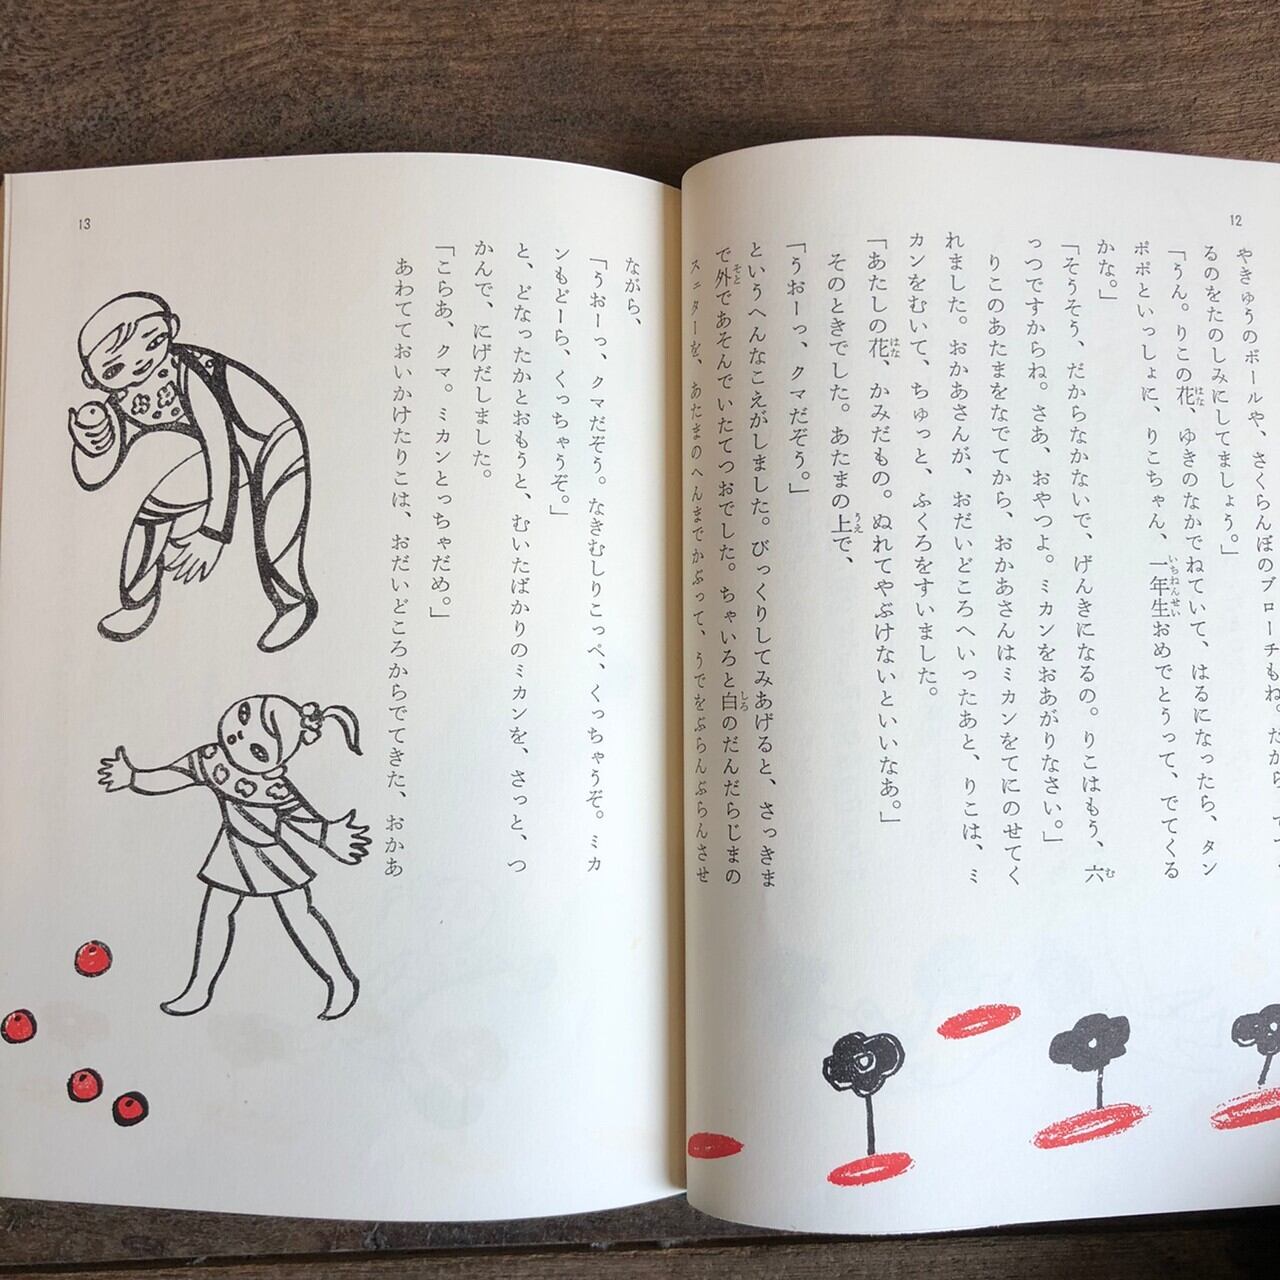 12
やきゅうのボールや、さくらんぼのブローチもね。だから、
るのをたのしみにしてましょう。」
「うん。りこの花、ゆきのなかでねていて、はるになったら、タン
はな
ポポといっしょに、りこちゃん、一年生おめでとうって、でてくる
いちねんせい
かな。」
「そうそう、だからなかないで、げんきになるの。りこはもう、六
む
っつですからね。さあ、おやつよ。ミカンをおあがりなさい。」
りこのあたまをなでてから、おかあさんはミカンをてにのせてく
れました。おかあさんが、おだいどころへいったあと、りこは、ミ
カンをむいて、ちゅっと、ふくろをすいました。
「あたしの花、かみだもの。ぬれてやぶけないといいなあ。」
はな
そのときでした。あたまの上で、
うえ
「うおーっ、クマだぞう。」
というへんなこえがしました。びっくりしてみあげると、さっきま
で外であそんでいたてつおでした。ちゃいろと白のだんだらじまの
そと
しろ
スエターを、あたまのへんまでかぶって、うでをぶらんぶらんさせ
13
ながら、
「うおーっ、クマだぞう。なきむしりこっぺ、くっちゃうぞ。ミカ
ンもどーら、くっちゃうぞ。」
と、どなったかとおもうと、むいたばかりのミカンを、さっと、つ
かんで、にげだしました。
「こらあ、クマ。ミカンとっちゃだめ。」
あわてておいかけたりこは、おだいどころからでてきた、おかあ